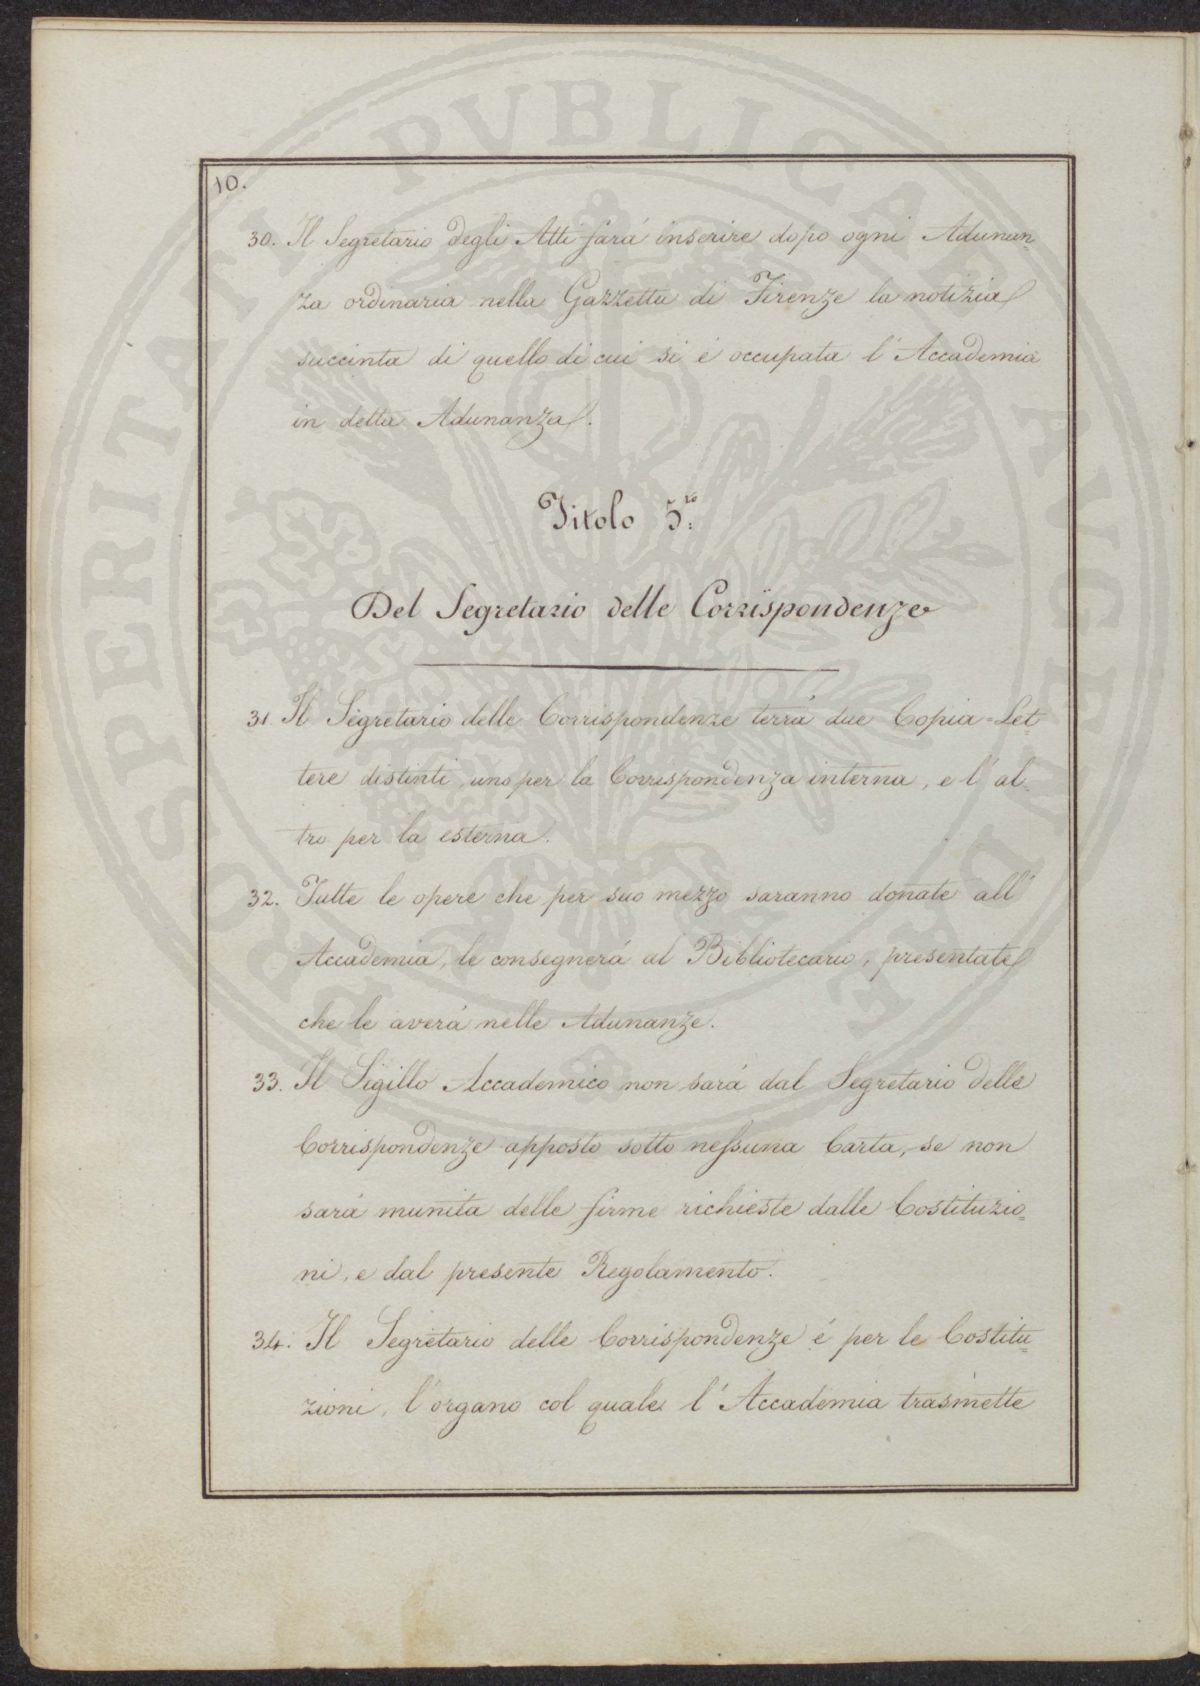 10.
30. Il Segretario degli Atti fará inserire dopo ogni Adunan=
za ordinaria nella Gazzetta di Firenze la notizia
succinta di quello di cui si é occupata l'Accademia
in detta Adunanza.
Titolo 5.to
Del Segretario delle Corrispondenze
31. Il Segretario delle Corrispondenze terrá due Copia=Let
tere distinti, uno per la Corrispondenza interna, e l'al=
tro per la esterna.
32. Tutte le opere che per suo mezzo saranno donate all'
Accademia, le consegnerá al Bibliotecario, presentate
che le averá nelle Adunanze.
33. Il Sigillo Accademico non sará dal Segretario delle
Corrispondenze apposto sotto nessuna Carta, se non
sará munita delle firme richieste dalle Costituzio=
ni, e dal presente Regolamento.
34. Il Segretario delle Corrispondenze é per le Costitu=
zioni, l'organo col quale l'Accademia trasmette
PROSPERITATI PVBLICAE AVGENDAE